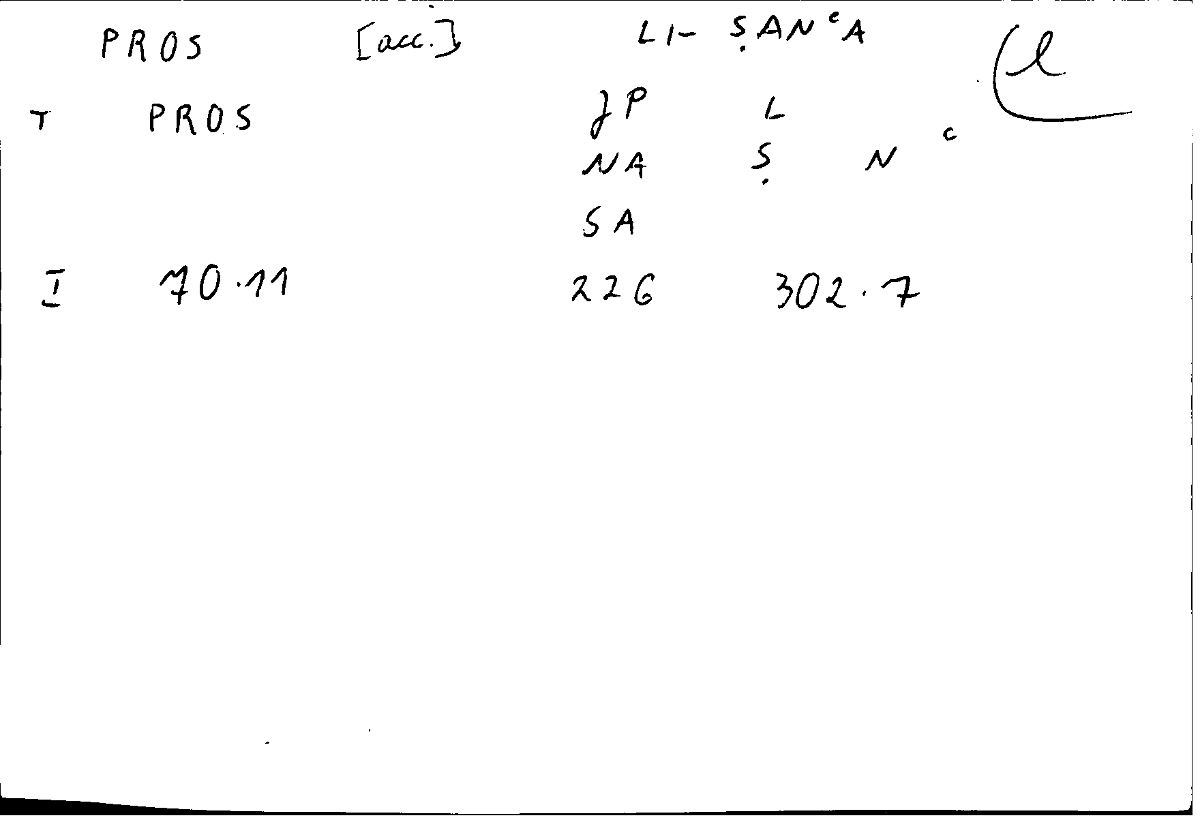 PROS [acc.] LI- ṢANʿA ℓ
T PROS JP L
NA Ṣ N ʿ
SA
I 70.11 226 302.7